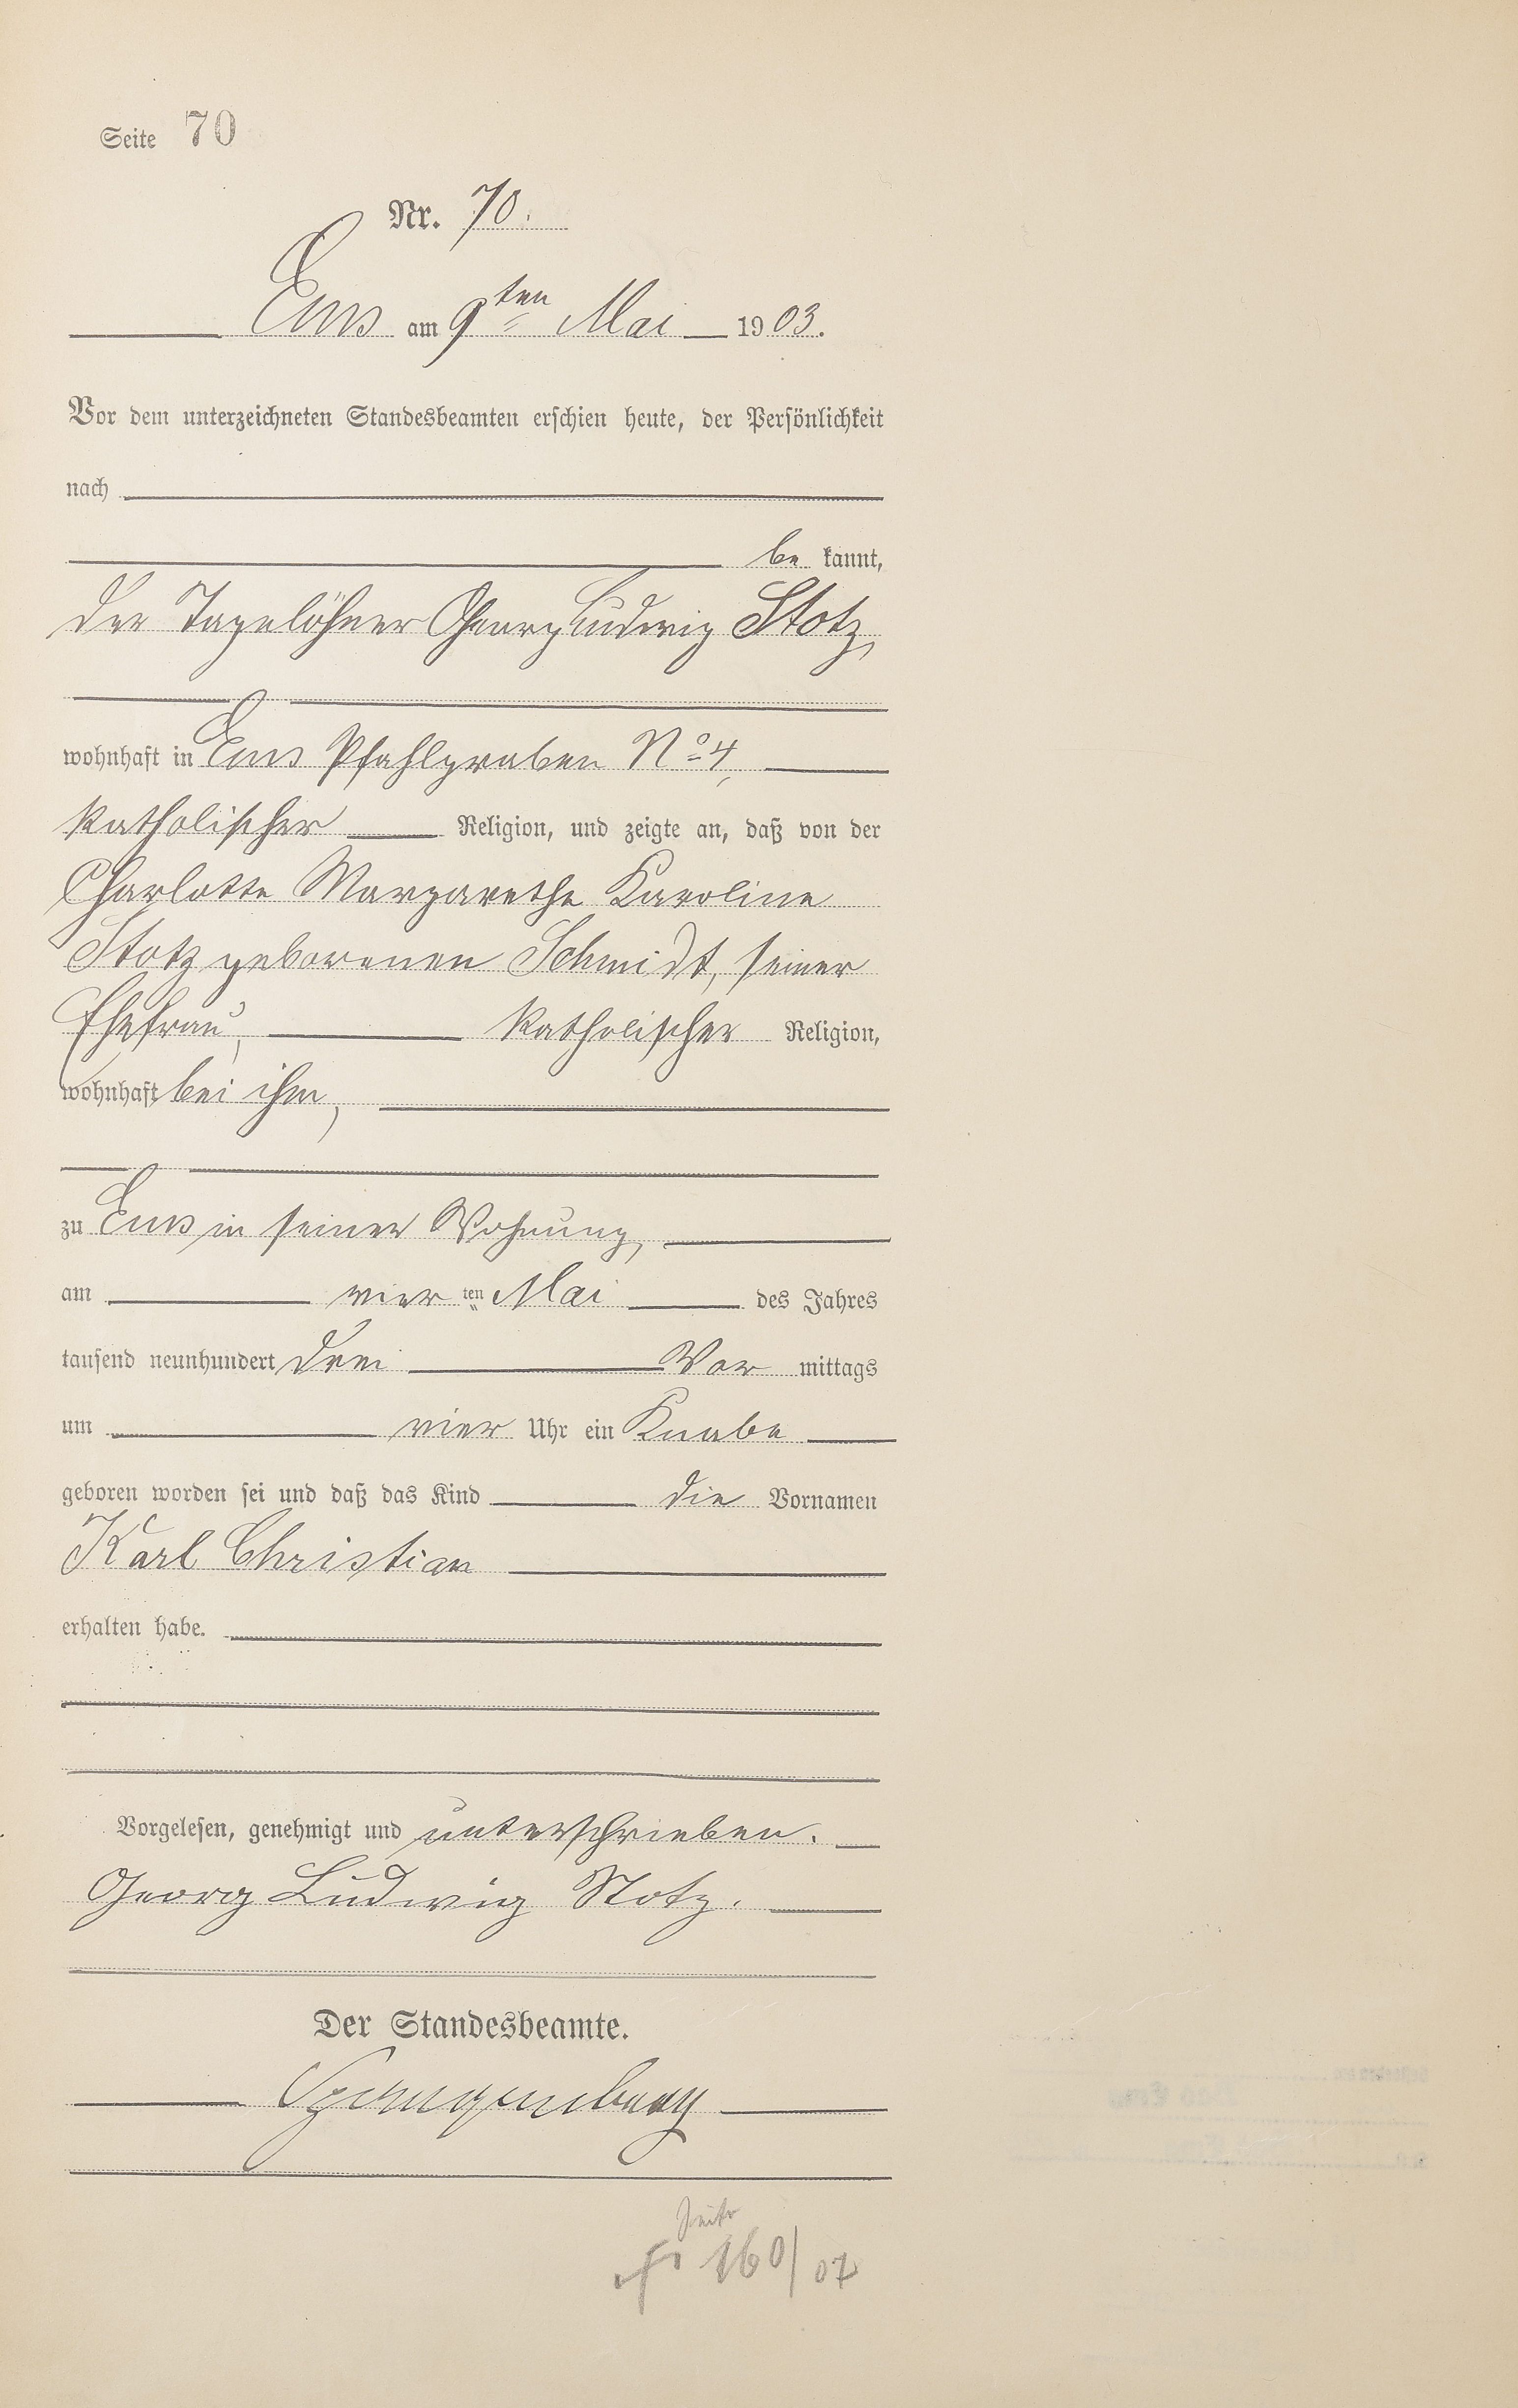 Seite 70
Nr. 70.
Ems am 9ten Mai 1903.
Vor dem unterzeichneten Standesbeamten erschien heute, der Persönlichkeit
nach
be kannt,
der Tagelöhner Georg Ludwig Stotz,
wohnhaft in Ems Pfahlgraben No 4,
katholischer Religion, und zeigte an, daß von der
Charlotte Margarethe Karoline
Stotz geborenen Schmidt, seiner
Ehefrau, katholischer Religion,
wohnhaft bei ihm,
zu Ems in seiner Wohnung,
am vier ten Mai des Jahres
tausend neunhundert drei Vor mittags
um vier Uhr ein Knabe
geboren worden sei und daß das Kind die Vornamen
Karl Christian
erhalten habe.
Vorgelesen, genehmigt und unterschrieben.
Georg Ludwig Stotz.
Der Standesbeamte.
Spangenberg
160/07